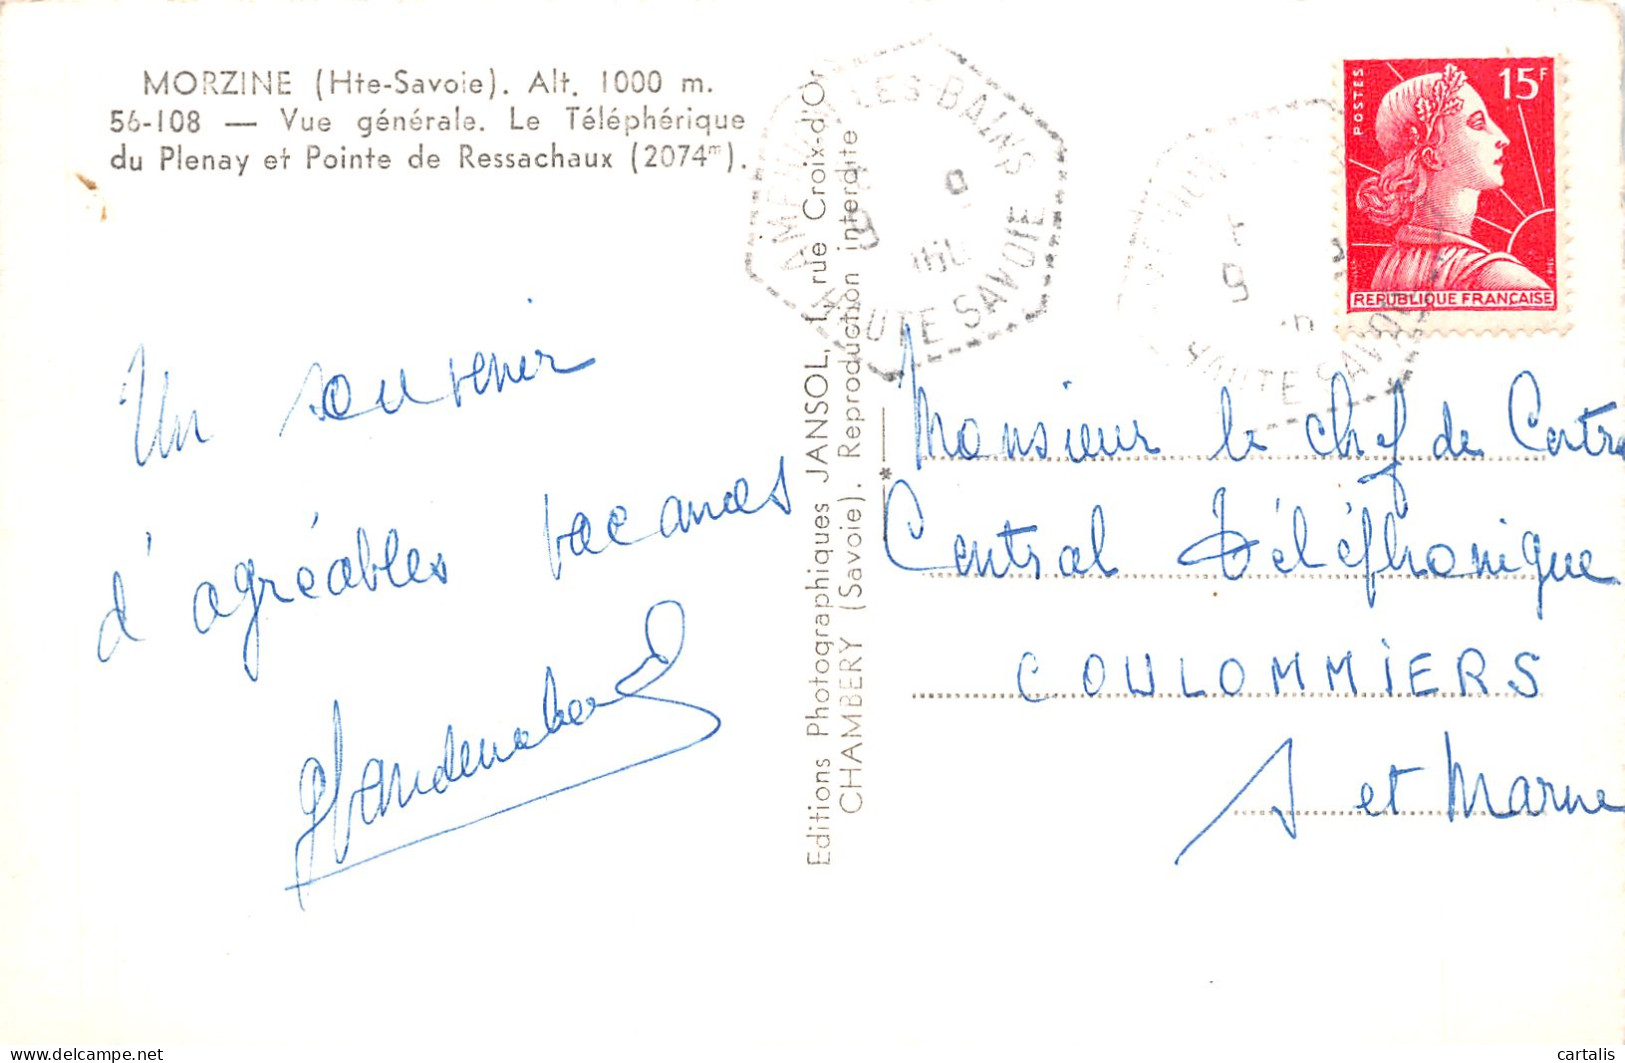 MORZINE (Hte-Savoie). Alt. 1000 m.
56-108 — Vue générale. Le Téléphérique
du Plenay et Pointe de Ressachaux (2074m).
Un souvenir
d'agréables vacances
Editions Photographiques JANSOL, 1, rue Croix-d'Or
CHAMBERY (Savoie). Reproduction interdite
LES-BAINS
HAUTE SAVOIE
HAUTE SAVOIE
POSTES
15F
REPUBLIQUE FRANÇAISE
Monsieur le chef de Centre
Central Téléphonique
COULOMMIERS
S et Marne
cartalis